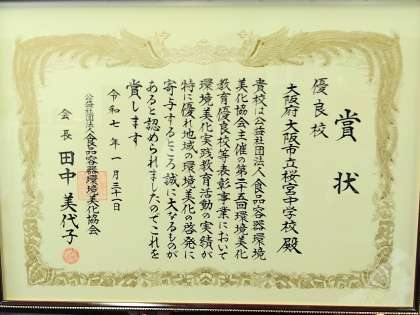 賞状
優良校
大阪府大阪市立桜宮中学校殿
貴校は公益社団法人食品容器環境
美化協会主催の第二十五回環境美化
教育優良校等表彰事業において
環境美化実践教育活動の実績が
特に優れ地域の環境美化の啓発に
寄与するところ誠に大なるものが
あると認められましたのでこれを
賞します
令和七年一月三十一日
公益社団法人食品容器環境美化協会
会長 田中美代子